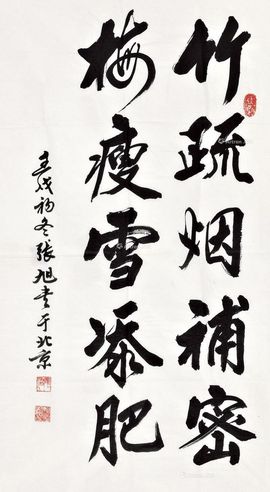 竹疏烟补密
梅瘦雪添肥
壬戌初冬张旭书于北京